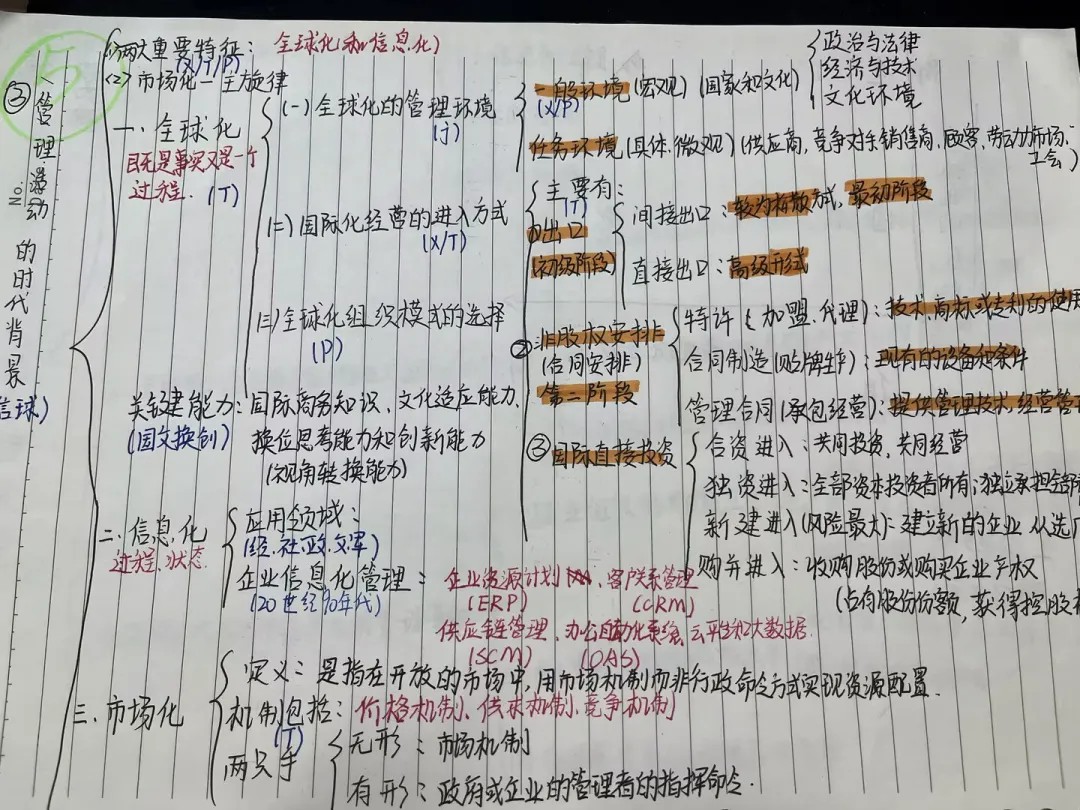 5
③管理活动的时代背景
No.
(1)两大重要特征：全球化和信息化)
(X/T/P)
(2)市场化—主旋律
一、全球化
既是事实又是一个
过程.(T)
(一)全球化的管理环境
(J)
一般环境(宏观)(国家和文化)
(X/P)
政治与法律
经济与技术
文化环境
任务环境(具体.微观)(供应商,竞争对手.销售商.顾客.劳动力市场.
工会)
(二)国际化经营的进入方式
(X/T)
主要有：
(T)
①出口
(初级阶段)
间接出口：较为分散方式,最初阶段
直接出口：高级形式
②非股权安排
(合同安排)
第二阶段
特许(加盟.代理)：技术.商标或专利的使用
合同制造(贴牌生产)：现有的设备和条件
管理合同(承包经营)：提供管理技术,经营管
③国际直接投资
合资进入：共同投资,共同经营
独资进入：全部资本投资者所有；独立承担全部
新建进入(风险最大)：建立新的企业 从选厂
购并进入：收购股份或购买企业产权
(占有股份份额,获得控股权
(三)全球化组织模式的选择
(P)
关键能力：国际商务知识、文化适应能力、
(国文换创) 换位思考能力和创新能力
(视角转换能力)
信球)
二.信息化
过程、状态
应用领域：
(经.社.政.文.军)
企业信息化管理：企业资源计划、客户关系管理
(20世纪90年代) (ERP) (CRM)
供应链管理、办公自动化系统、云平台和大数据.
(SCM) (OAS)
三.市场化
定义：是指在开放的市场中,用市场机制而非行政命令方式实现资源配置.
机制包括：价格机制、供求机制、竞争机制
(T)
两只手
无形：市场机制
有形：政府或企业的管理者的指挥命令.